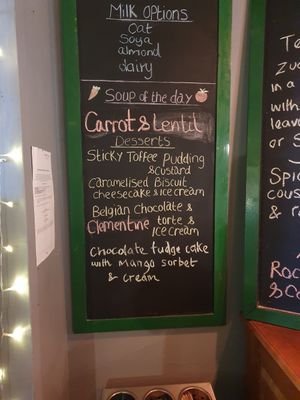 Milk Options
Oat
Soya
almond
dairy
Soup of the day
Carrot & Lentil
Desserts
Sticky Toffee Pudding
& custard
Caramelised Biscuit
cheesecake & ice cream
Belgian Chocolate &
Clementine torte &
Ice cream
Chocolate fudge cake
with Mango sorbet
& cream
Te
Zu
in a
with
leave
or S
Spic
cous
& r
Roc
& Co